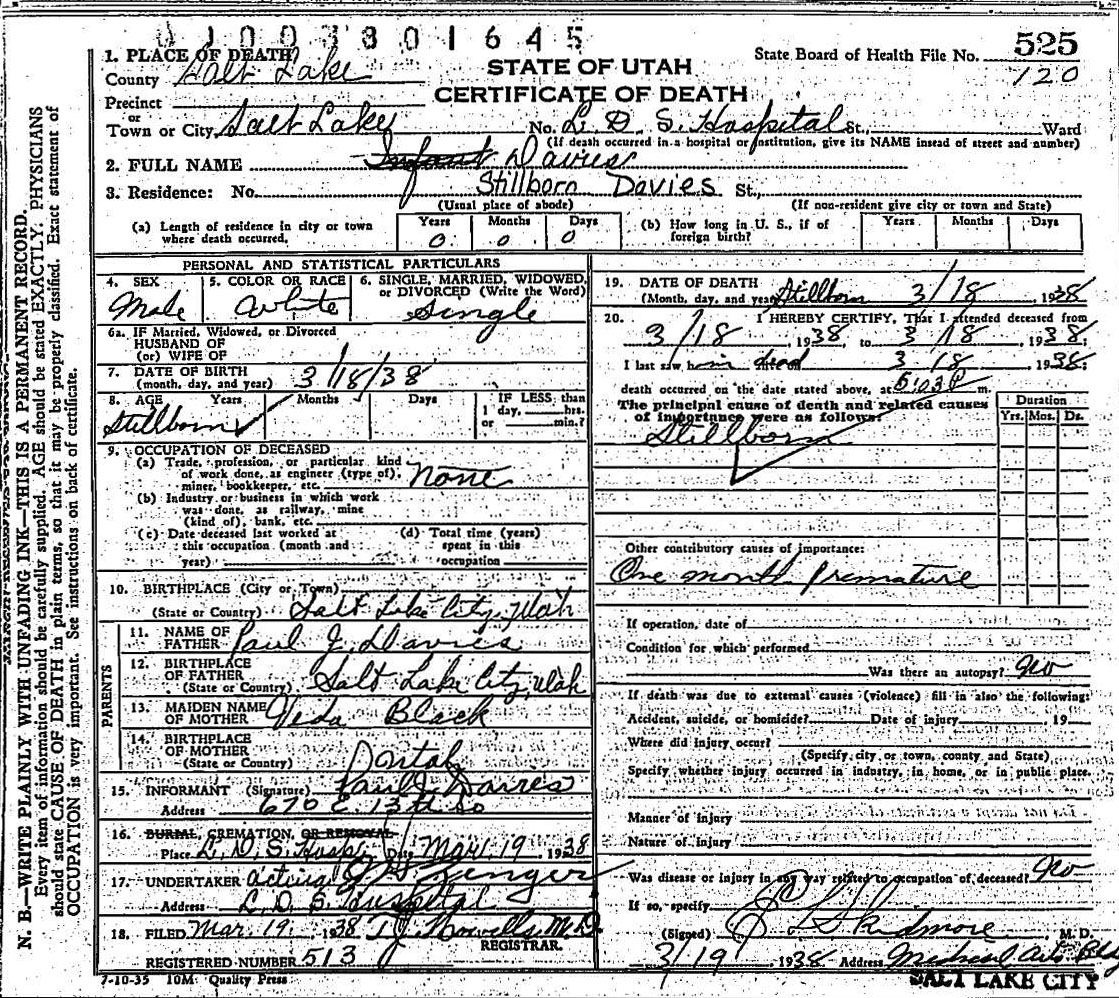 0 1 0 0 3 8 0 1 6 4 5
State Board of Health File No. 525
120
STATE OF UTAH
CERTIFICATE OF DEATH
1. PLACE OF DEATH
County Salt Lake
Precinct
or
Town or City Salt Lake No. L. D. S. Hospital St., Ward
(If death occurred in a hospital or institution, give its NAME insead of street and number)
2. FULL NAME Infant Davies
Stillborn Davies
3. Residence: No. St.,
(Usual place of abode) (If non-resident give city or town and State)
(a) Length of residence in city or town where death occurred, Years 0 Months 0 Days 0
(b) How long in U. S., if of foreign birth? Years Months Days
PERSONAL AND STATISTICAL PARTICULARS
4. SEX Male
5. COLOR OR RACE White
6. SINGLE, MARRIED, WIDOWED, or DIVORCED (Write the Word) Single
6a. IF Married, Widowed, or Divorced
HUSBAND OF
(or) WIFE OF
7. DATE OF BIRTH
(month, day, and year) 3/18/38
8. AGE Years Months Days IF LESS than
1 day, hrs.
or min.?
Stillborn
9. OCCUPATION OF DECEASED
(a) Trade, profession, or particular kind
of work done, as engineer (type of),
miner, bookkeeper, etc. none
(b) Industry or business in which work
was done, as railway, mine
(kind of), bank, etc.
(c) Date deceased last worked at
this occupation (month and
year)
(d) Total time (years)
spent in this
occupation
10. BIRTHPLACE (City or Town)
(State or Country) Salt Lake City, Utah
PARENTS
11. NAME OF
FATHER Paul J. Davies
12. BIRTHPLACE
OF FATHER
(State or Country) Salt Lake City, Utah
13. MAIDEN NAME
OF MOTHER Veda Black
14. BIRTHPLACE
OF MOTHER
(State or Country)
15. INFORMANT (Signature) Paul J. Davies
Address 670 E. 13th So
16. BURIAL, CREMATION, OR REMOVAL
Place L. D. S. Hosp. Date Mar. 19 1938
17. UNDERTAKER acting
Address L. D. S. Hospital
18. FILED Mar. 19 1938 T. J. Howells M.D.
REGISTRAR.
REGISTERED NUMBER 513
7-10-35 10M Quality Press
19. DATE OF DEATH
(Month, day, and year) Stillborn 3/18 1938
20. I HEREBY CERTIFY, That I attended deceased from
3/18 1938, to 3/18, 1938;
I last saw him dead on 3 18 1938;
death occurred on the date stated above, at 5:03 P m.
The principal cause of death and related causes
of importance were as follows:
Duration
Yrs. Mos. Ds.
Stillborn
Other contributory causes of importance:
One month premature
If operation, date of
Condition for which performed
Was there an autopsy? No
If death was due to external causes (violence) fill in also the following:
Accident, suicide, or homicide? Date of injury , 19
Where did injury occur?
(Specify city or town, county and State)
Specify whether injury occurred in industry, in home, or in public place.
Manner of injury
Nature of injury
Was disease or injury in any way related to occupation of deceased? No
If so, specify
(Signed) Skidmore, M. D.
3/19 1938 Address Medical Arts Bldg
SALT LAKE CITY
N. B.—WRITE PLAINLY WITH UNFADING INK—THIS IS A PERMANENT RECORD.
Every item of information should be carefully supplied. AGE should be stated EXACTLY. PHYSICIANS
should state CAUSE OF DEATH in plain terms, so that it may be properly classified. Exact statement of
OCCUPATION is very important. See instructions on back of certificate.